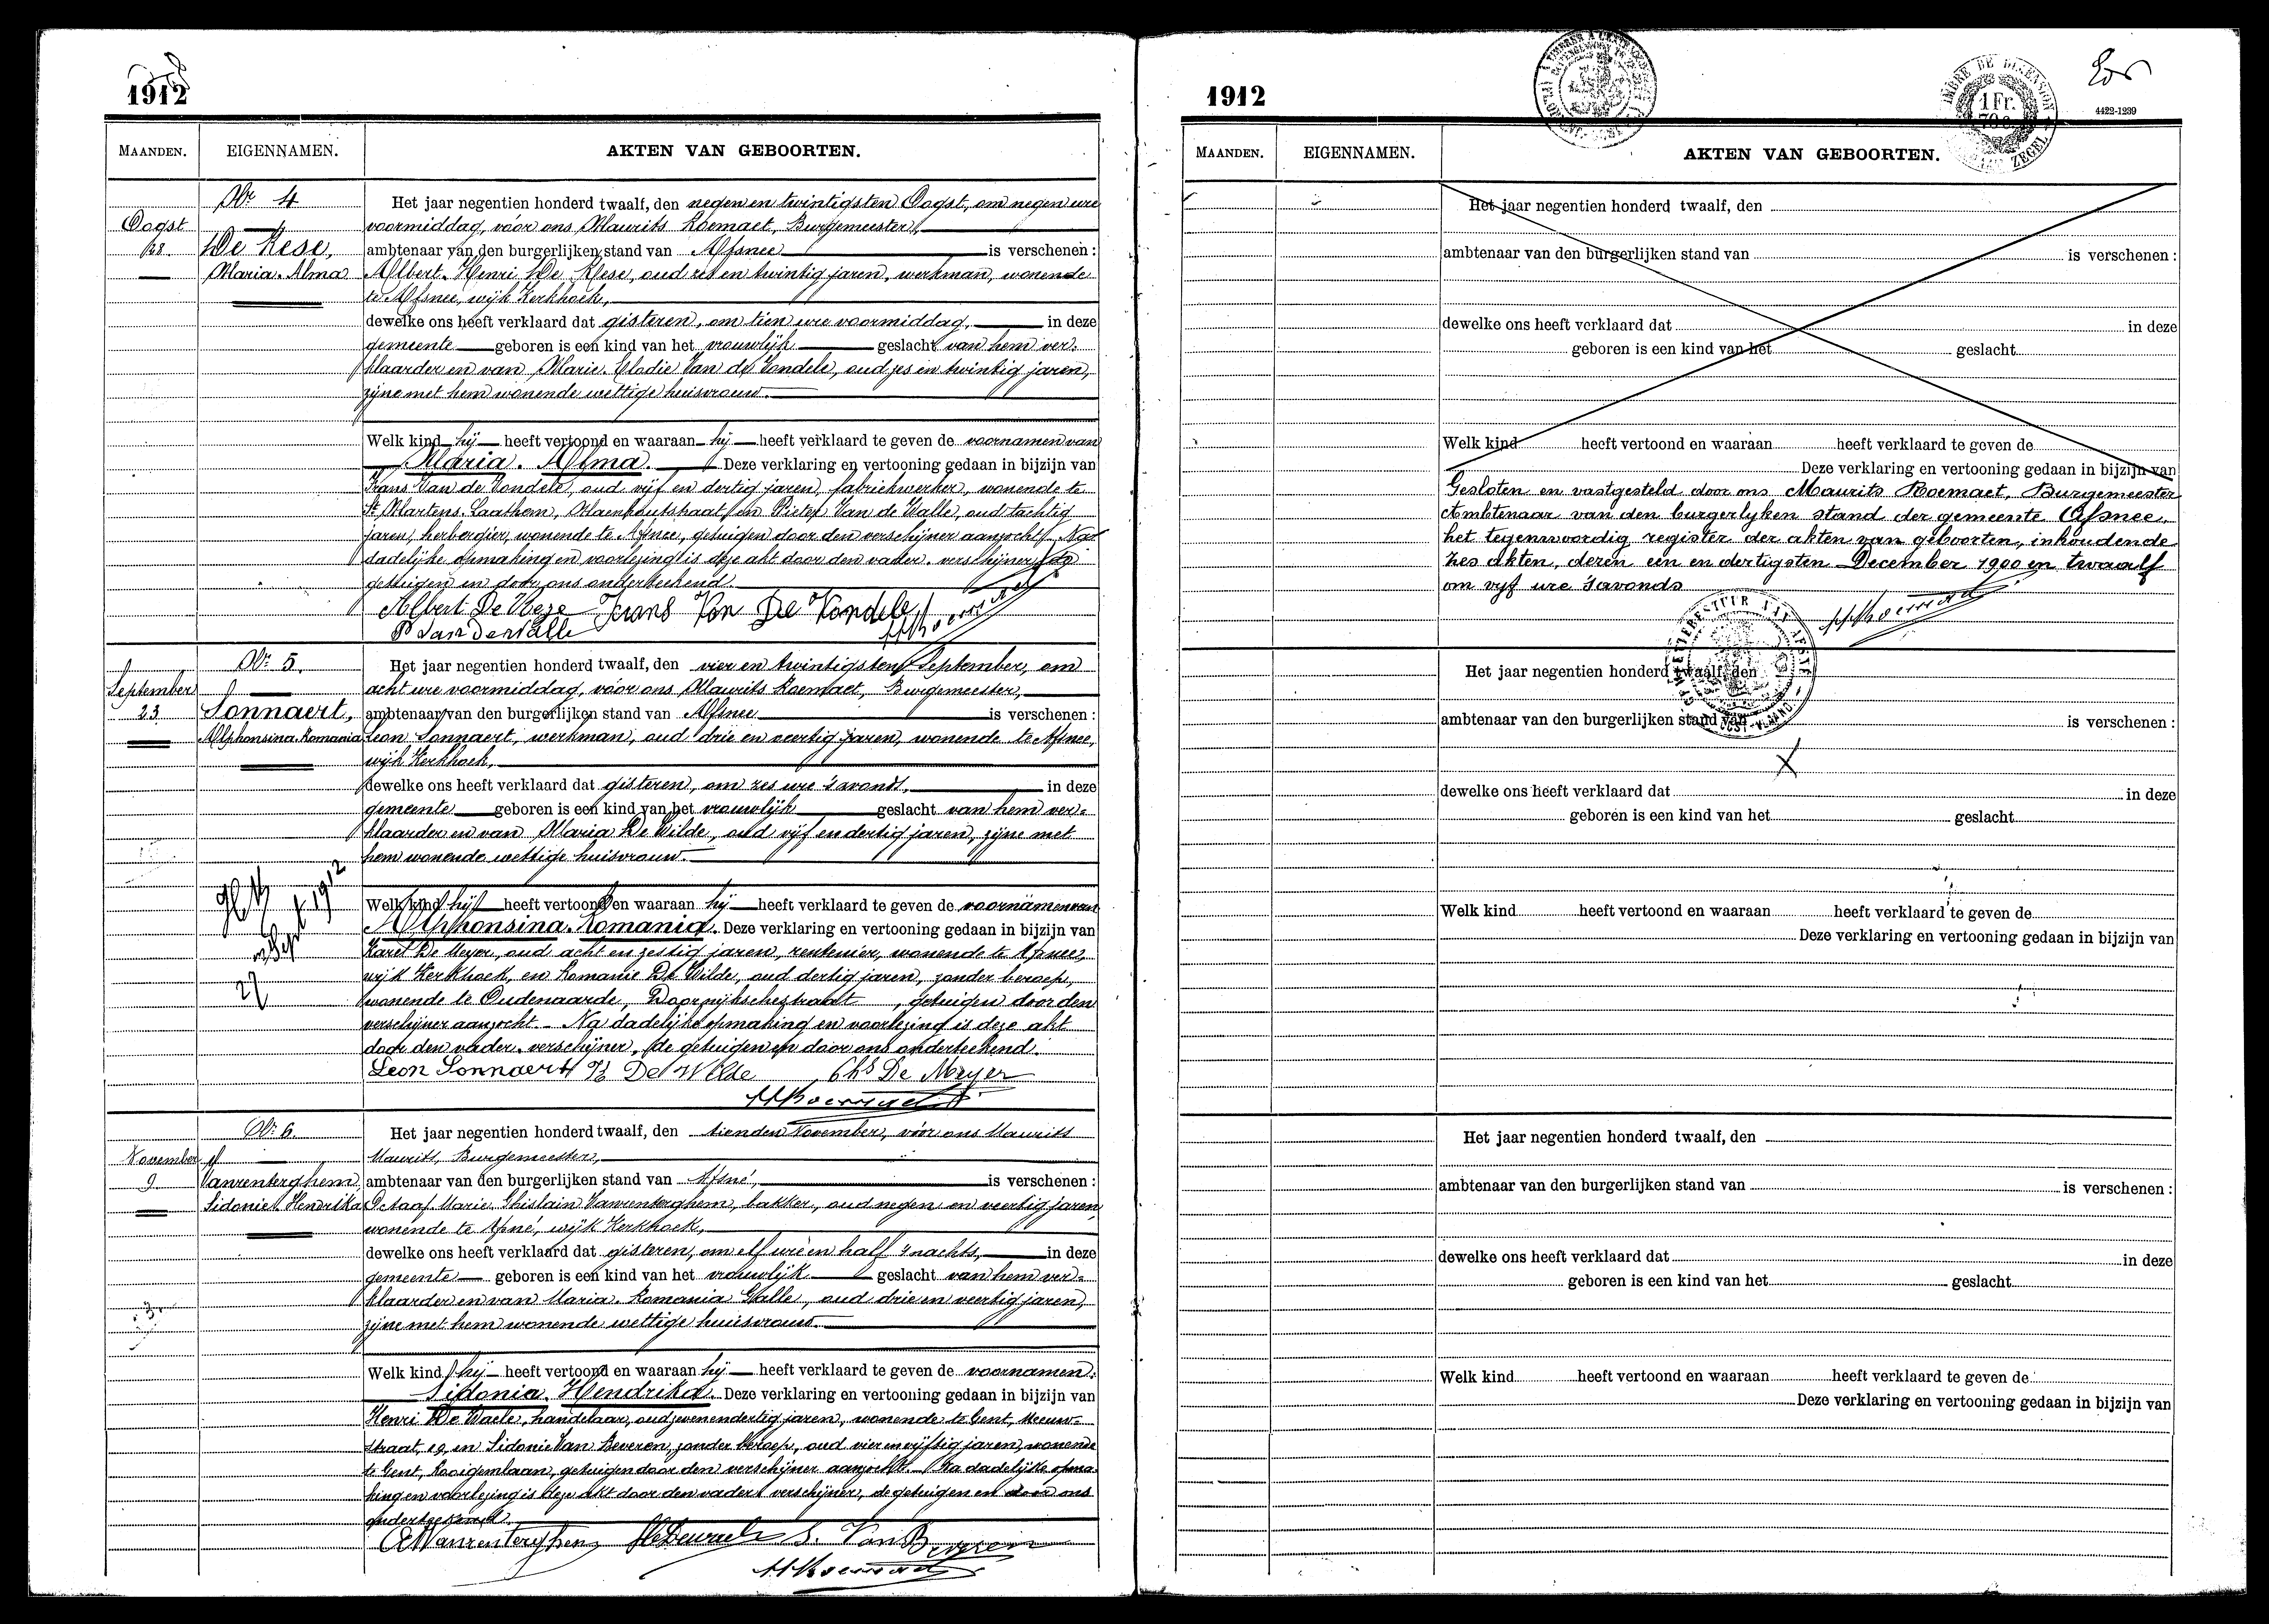 1912
MAANDEN. EIGENNAMEN. AKTEN VAN GEBOORTEN.
Nr 4
Oogst
28
De Rese,
Maria-Alma
Het jaar negentien honderd twaalf, den negen en twintigsten Oogst, om negen ure
voormiddag, vóór ons Maurits Roemaet, Burgemeester,
ambtenaar van den burgerlijken stand van Afsnee is verschenen:
Albert-Henri De Rese, oud en twintig jaren, werkman, wonende
te Afsnee, wijk Kerkhoek,
dewelke ons heeft verklaard dat gisteren, om tien ure voormiddag, in deze
gemeente geboren is een kind van het vrouwlijk geslacht van hem ver-
klaarder en van Marie-Elodie Van de Vondele, oud zes en twintig jaren,
zijne met hem wonende wettige huisvrouw.
Welk kind hij heeft vertoond en waaraan hij heeft verklaard te geven de voornamen van
Maria-Alma. Deze verklaring en vertooning gedaan in bijzijn van
Frans Van de Vondele, oud vijf en dertig jaren, fabriekwerker, wonende te
St Martens-Laathem, en Pieter Van de Walle, oud tachtig
jaren, herbergier, wonende te Afsnee, getuigen door den verschijner aanzocht. Na
dadelijke opmaking en voorlezing is deze akt door den vader-verschijner, de
getuigen en door ons onderteekend.
Albert De Reze Frans Van De Vondele
P Vandewalle MRoemaet
Nr 5.
September
23
Sonnaert,
Alphonsina-Romania
Het jaar negentien honderd twaalf, den vier en twintigsten September, om
acht ure voormiddag, vóór ons Maurits Roemaet, Burgemeester,
ambtenaar van den burgerlijken stand van Afsnee is verschenen:
Leon Sonnaert, werkman, oud drie en veertig jaren, wonende te Afsnee,
wijk Kerkhoek,
dewelke ons heeft verklaard dat gisteren, om zes ure 's avonds, in deze
gemeente geboren is een kind van het vrouwlijk geslacht van hem ver-
klaarder en van Maria De Wilde, oud vijf en dertig jaren, zijne met
hem wonende wettige huisvrouw.
27 Sept 1912
Welk kind hij heeft vertoond en waaraan hij heeft verklaard te geven de voornamen van
Alphonsina-Romania. Deze verklaring en vertooning gedaan in bijzijn van
Karel De Meyer, oud acht en zestig jaren, rentenier, wonende te Afsnee,
wijk Kerkhoek, en Romanie De Wilde, oud dertig jaren, zonder beroep,
wonende te Oudenaarde, Doornijkschestraat, getuigen door den
verschijner aanzocht. Na dadelijke opmaking en voorlezing is deze akt
door den vader-verschijner, de getuigen en door ons onderteekend.
Leon Sonnaert R De Wilde Chs De Meyer
MRoemaet
Nr 6.
November
9
Vanrenterghem
Sidonie-Hendrika
Het jaar negentien honderd twaalf, den tienden November, vóór ons Maurits
Maurits, Burgemeester,
ambtenaar van den burgerlijken stand van Afsné, is verschenen:
Octaaf-Marie-Ghislain Vanrenterghem, bakker, oud negen en veertig jaren,
wonende te Afsné, wijk Kerkhoek,
dewelke ons heeft verklaard dat gisteren, om elf ure en half 's nachts, in deze
gemeente geboren is een kind van het vrouwlijk geslacht van hem ver-
klaarder en van Maria-Romania Galle, oud drie en veertig jaren,
zijne met hem wonende wettige huisvrouw.
Welk kind hij heeft vertoond en waaraan hij heeft verklaard te geven de voornamen
Sidonia-Hendrika. Deze verklaring en vertooning gedaan in bijzijn van
Henri De Waele, handelaar, oud zevenendertig jaren, wonende te Gent, Meeuw-
straat, 29, en Sidonie Van Beveren, zonder beroep, oud vier en vijftig jaren, wonende
te Gent, Rooigemlaan, getuigen door den verschijner aanzocht. Na dadelijke opma-
king en voorlezing is deze akt door den vader verschijner, de getuigen en door ons
onderteekend.
Vanrenterghem S. Van Beveren
MRoemaet
1912
1 Fr.
4422-1239
MAANDEN. EIGENNAMEN. AKTEN VAN GEBOORTEN.
Het jaar negentien honderd twaalf, den
ambtenaar van den burgerlijken stand van is verschenen:
dewelke ons heeft verklaard dat in deze
geboren is een kind van het geslacht
Welk kind heeft vertoond en waaraan heeft verklaard te geven de
Deze verklaring en vertooning gedaan in bijzijn van
Gesloten en vastgesteld door ons Maurits Roemaet, Burgemeester
Ambtenaar van den burgerlyken stand der gemeente Afsnee,
het tegenwoordig register der akten van geboorten, inhoudende
zes akten, deren een en dertigsten December 1900 en twaalf
om vyf ure 's avonds
MRoemaet
Het jaar negentien honderd twaalf, den
ambtenaar van den burgerlijken stand van is verschenen:
dewelke ons heeft verklaard dat in deze
geboren is een kind van het geslacht
Welk kind heeft vertoond en waaraan heeft verklaard te geven de
Deze verklaring en vertooning gedaan in bijzijn van
Het jaar negentien honderd twaalf, den
ambtenaar van den burgerlijken stand van is verschenen:
dewelke ons heeft verklaard dat in deze
geboren is een kind van het geslacht
Welk kind heeft vertoond en waaraan heeft verklaard te geven de
Deze verklaring en vertooning gedaan in bijzijn van